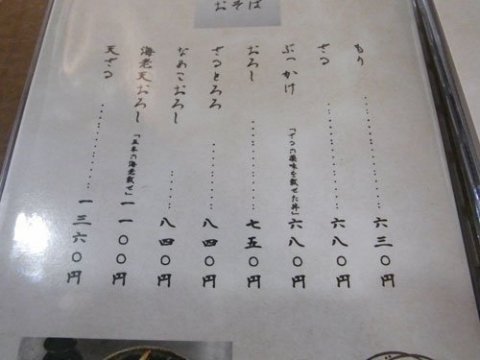 おそば
もり ………… 六三〇円
ざる ………… 六八〇円
ぶっかけ 「七つの薬味を載せた丼」 六八〇円
おろし ………… 七五〇円
ざるとろろ ……… 八四〇円
なめこおろし …… 八四〇円
海老天おろし 「五本の海老載せ」 一一〇〇円
天ざる ………… 一三六〇円